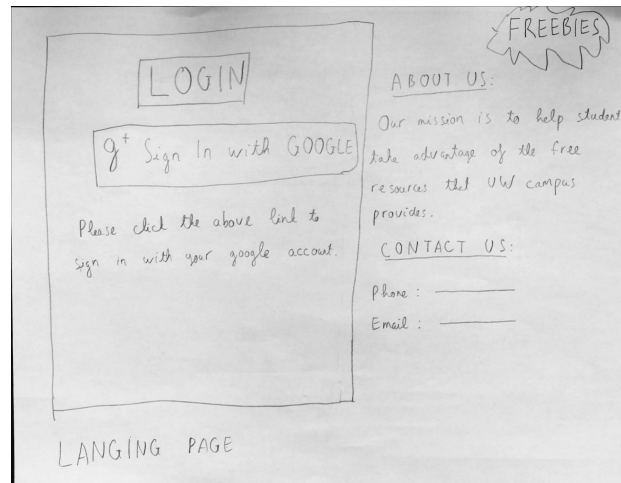 FREEBIES
LOGIN
g+ Sign In with GOOGLE
Please click the above link to
sign in with your google account.
ABOUT US:
Our mission is to help student
take advantage of the free
resources that UW campus
provides.
CONTACT US:
Phone :
Email :
LANGING PAGE